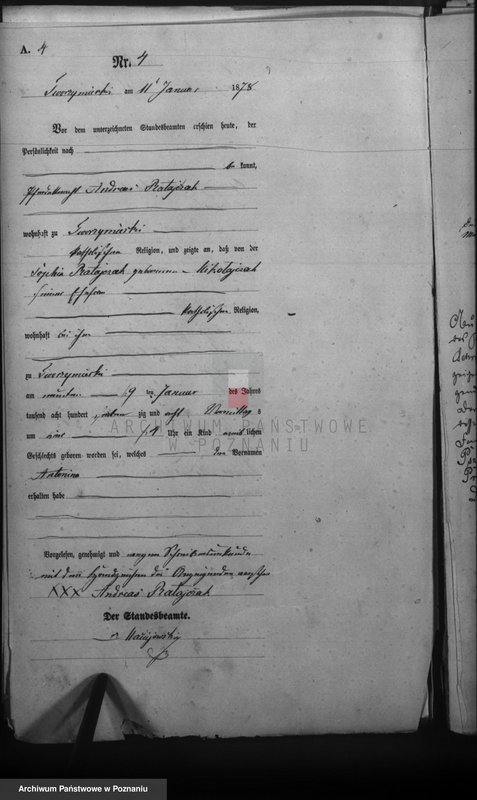 A. 4
Nr. 4
am 11 Januar 1878
Vor dem unterzeichneten Standesbeamten erschien heute, der
Persönlichkeit nach
be kannt,
Andreas Ratajczak
wohnhaft zu
katholischer Religion, und zeigte an, daß von der
Sophia Ratajczak geborenen Mikołajczak
seiner Ehefrau
katholischer Religion,
wohnhaft bei ihm
zu
am neunten (9 ten Januar des Jahres
tausend acht hundert sieben zig und acht Vormittag s
um eins (1 Uhr ein Kind weiblichen
Geschlechts geboren worden sei, welches den Vornamen
Antonina
erhalten habe
Vorgelesen, genehmigt und wegen Schreibensunkunde
mit dem Handzeichen des Anzeigenden versehen
XXX Andreas Ratajczak
Der Standesbeamte.
ARCHIWUM PAŃSTWOWE
W POZNANIU
Archiwum Państwowe w Poznaniu